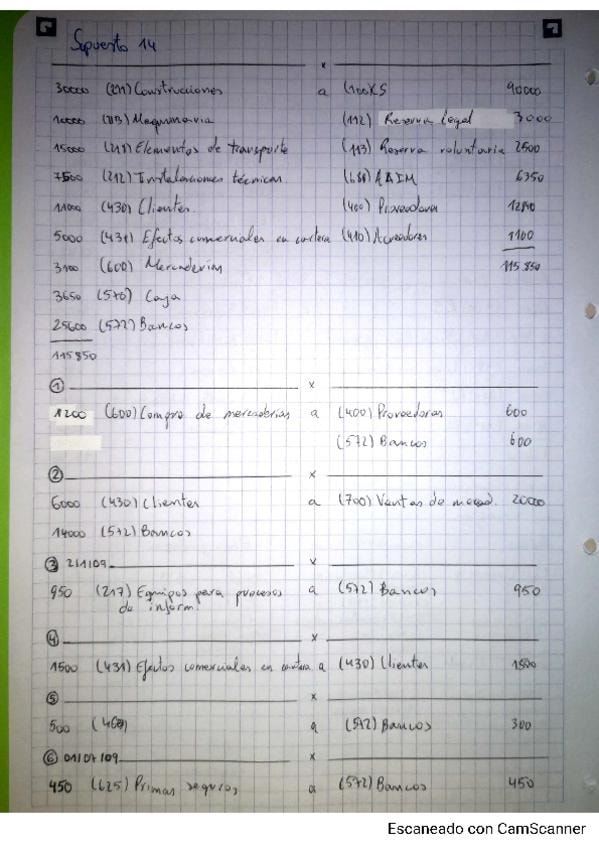 Supuesto 14
x
30000 (211) Construcciones a (100) KS 90000
10000 (213) Maquinaria (112) Reserva legal 3000
15000 (218) Elementos de transporte (113) Reserva voluntaria 2500
7500 (212) Instalaciones técnicas 6350
11000 (430) Clientes (400) Proveedores
5000 (431) Efectos comerciales en cartera (410) Acreedores 1100
3100 (600) Mercaderías 115 850
3650 (570) Caja
25600 (572) Bancos
115850
① x
1200 (600) Compra de mercaderías a (400) Proveedores 600
(572) Bancos 600
② x
6000 (430) Clientes a (700) Ventas de mercad. 20000
14000 (572) Bancos
③ 2/1/09 x
950 (217) Equipos para procesos a (572) Bancos 950
de inform.
④ x
1500 (431) Efectos comerciales en cartera a (430) Clientes 1500
⑤ x
500 a (572) Bancos 300
⑥ 01/07/09 x
450 (625) Primas seguros a (572) Bancos 450
Escaneado con CamScanner